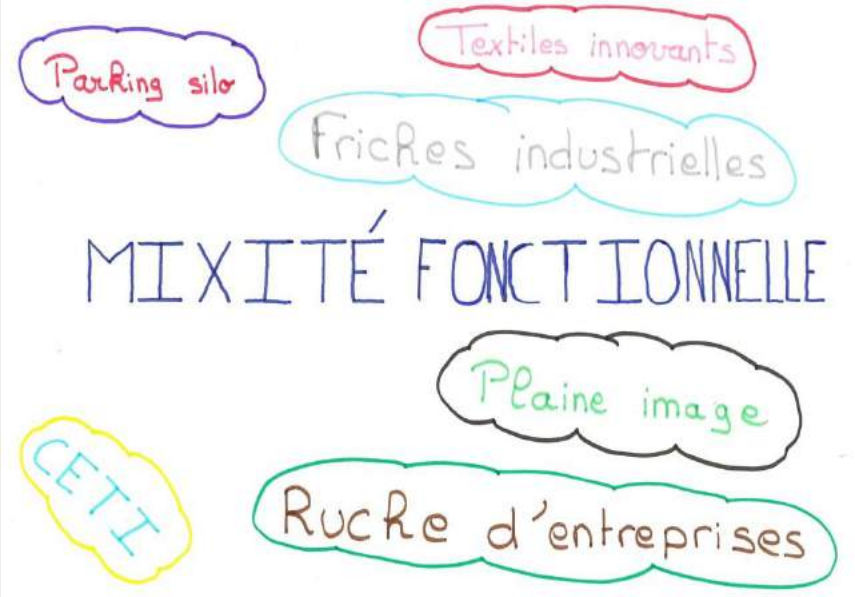 Parking silo
Textiles innovants
Friches industrielles
MIXITÉ FONCTIONNELLE
Plaine image
CETI
Ruche d'entreprises